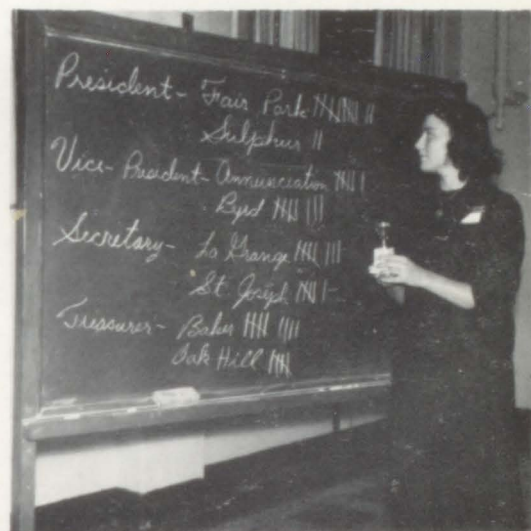 President - Fair Park 𝍸𝍸 ||
Sulphur ||
Vice-President - Annunciation 𝍸 |
Byrd 𝍸 |||
Secretary - La Grange 𝍸 |||
St. Joseph 𝍸 | -
Treasurer - Baker 𝍸 ||||
Oak Hill 𝍸